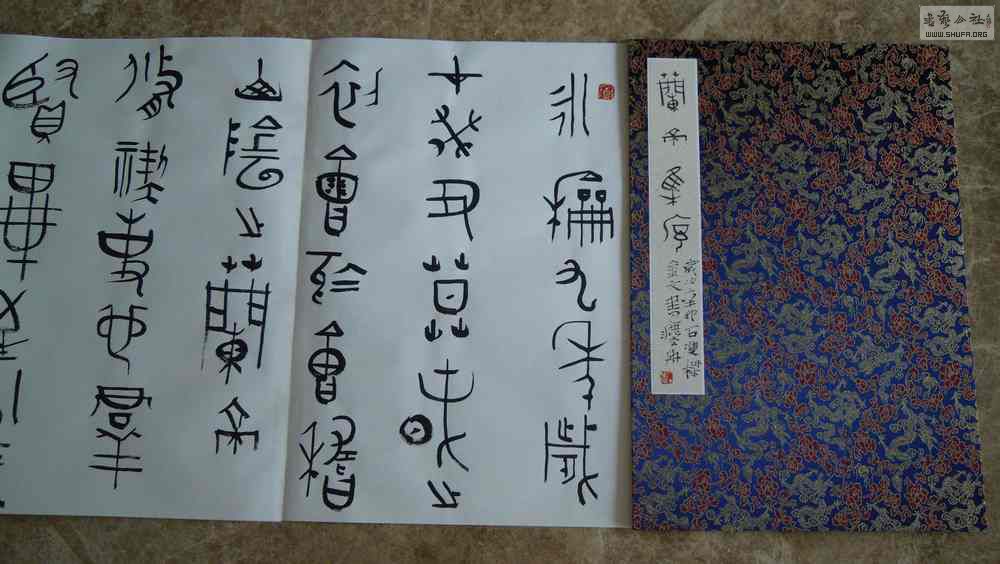 書藝公社
WWW.SHUFA.ORG
蘭亭集序
永龢九年歲
在癸丑莫春之
初會於會稽
山陰之蘭亭
脩禊事也群
賢畢至